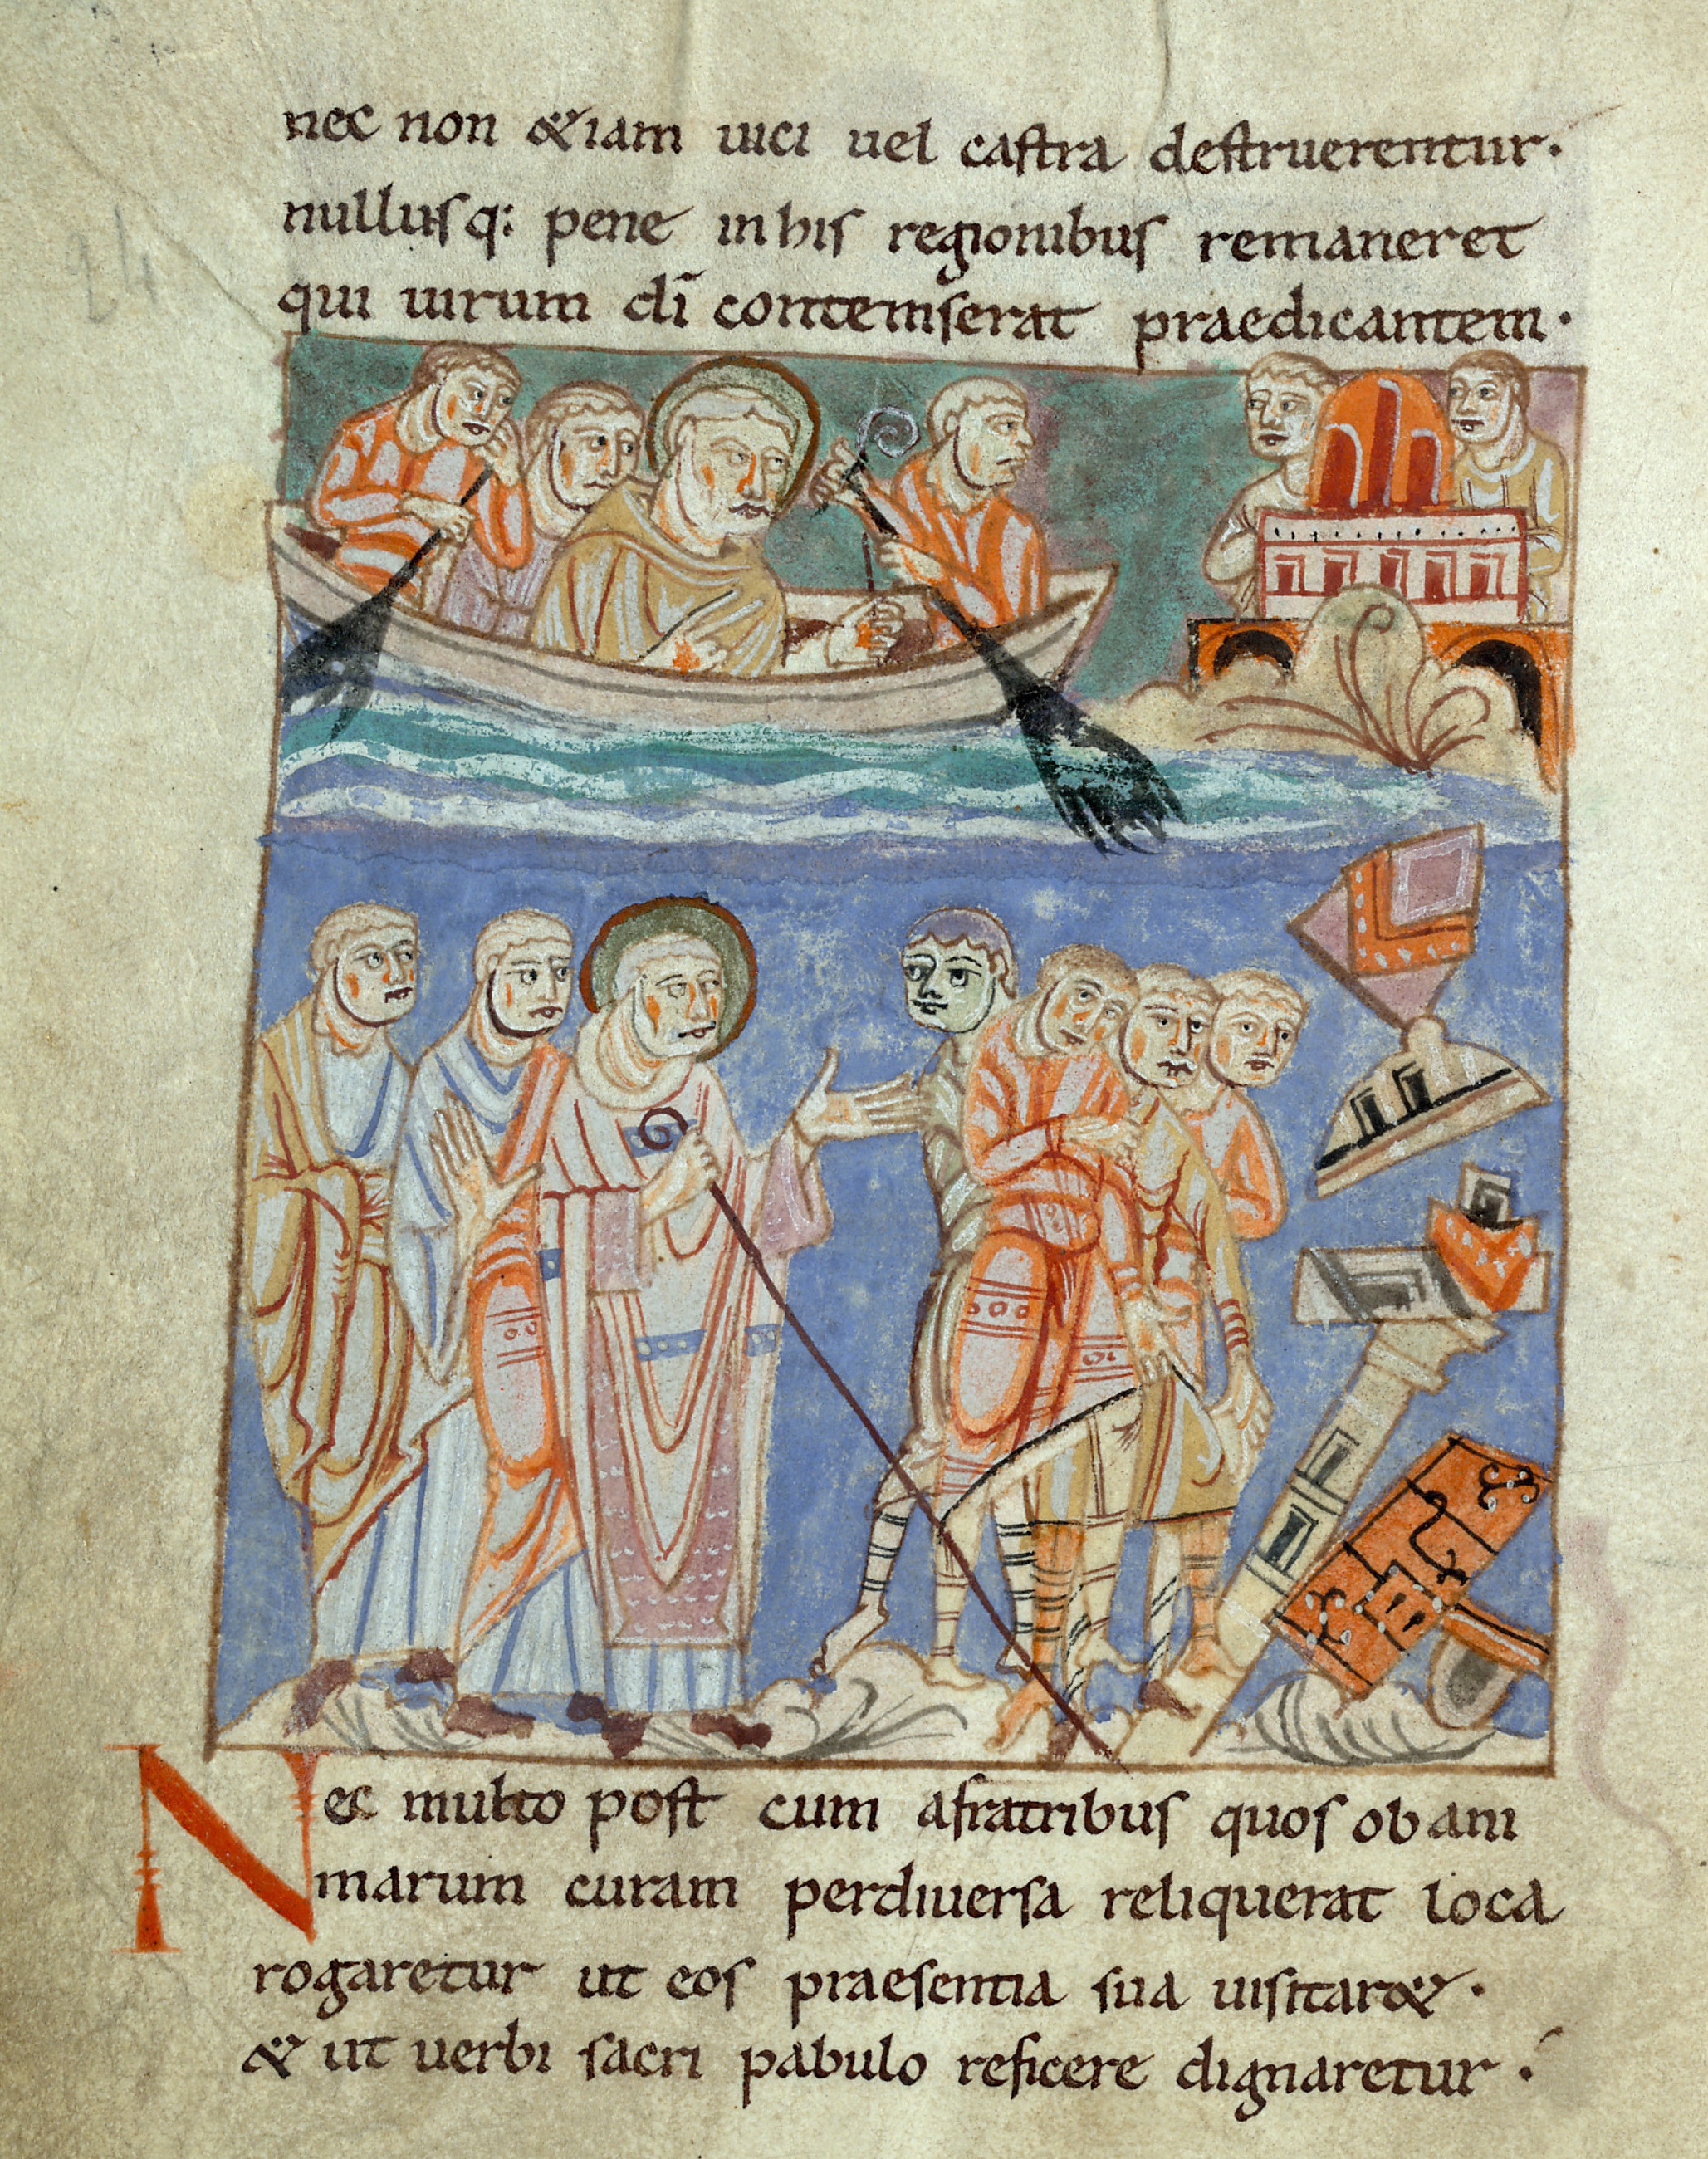 nec non &iam uici uel castra destruerentur.
nullusq: pene in his regionibus remaneret
qui uirum dī contemserat praedicantem.
Nec multo post cum a fratribus quos ob ani
marum curam per diuersa reliquerat loca
rogaretur ut eos praesentia sua uisitar&.
& ut uerbi sacri pabulo reficere dignaretur.